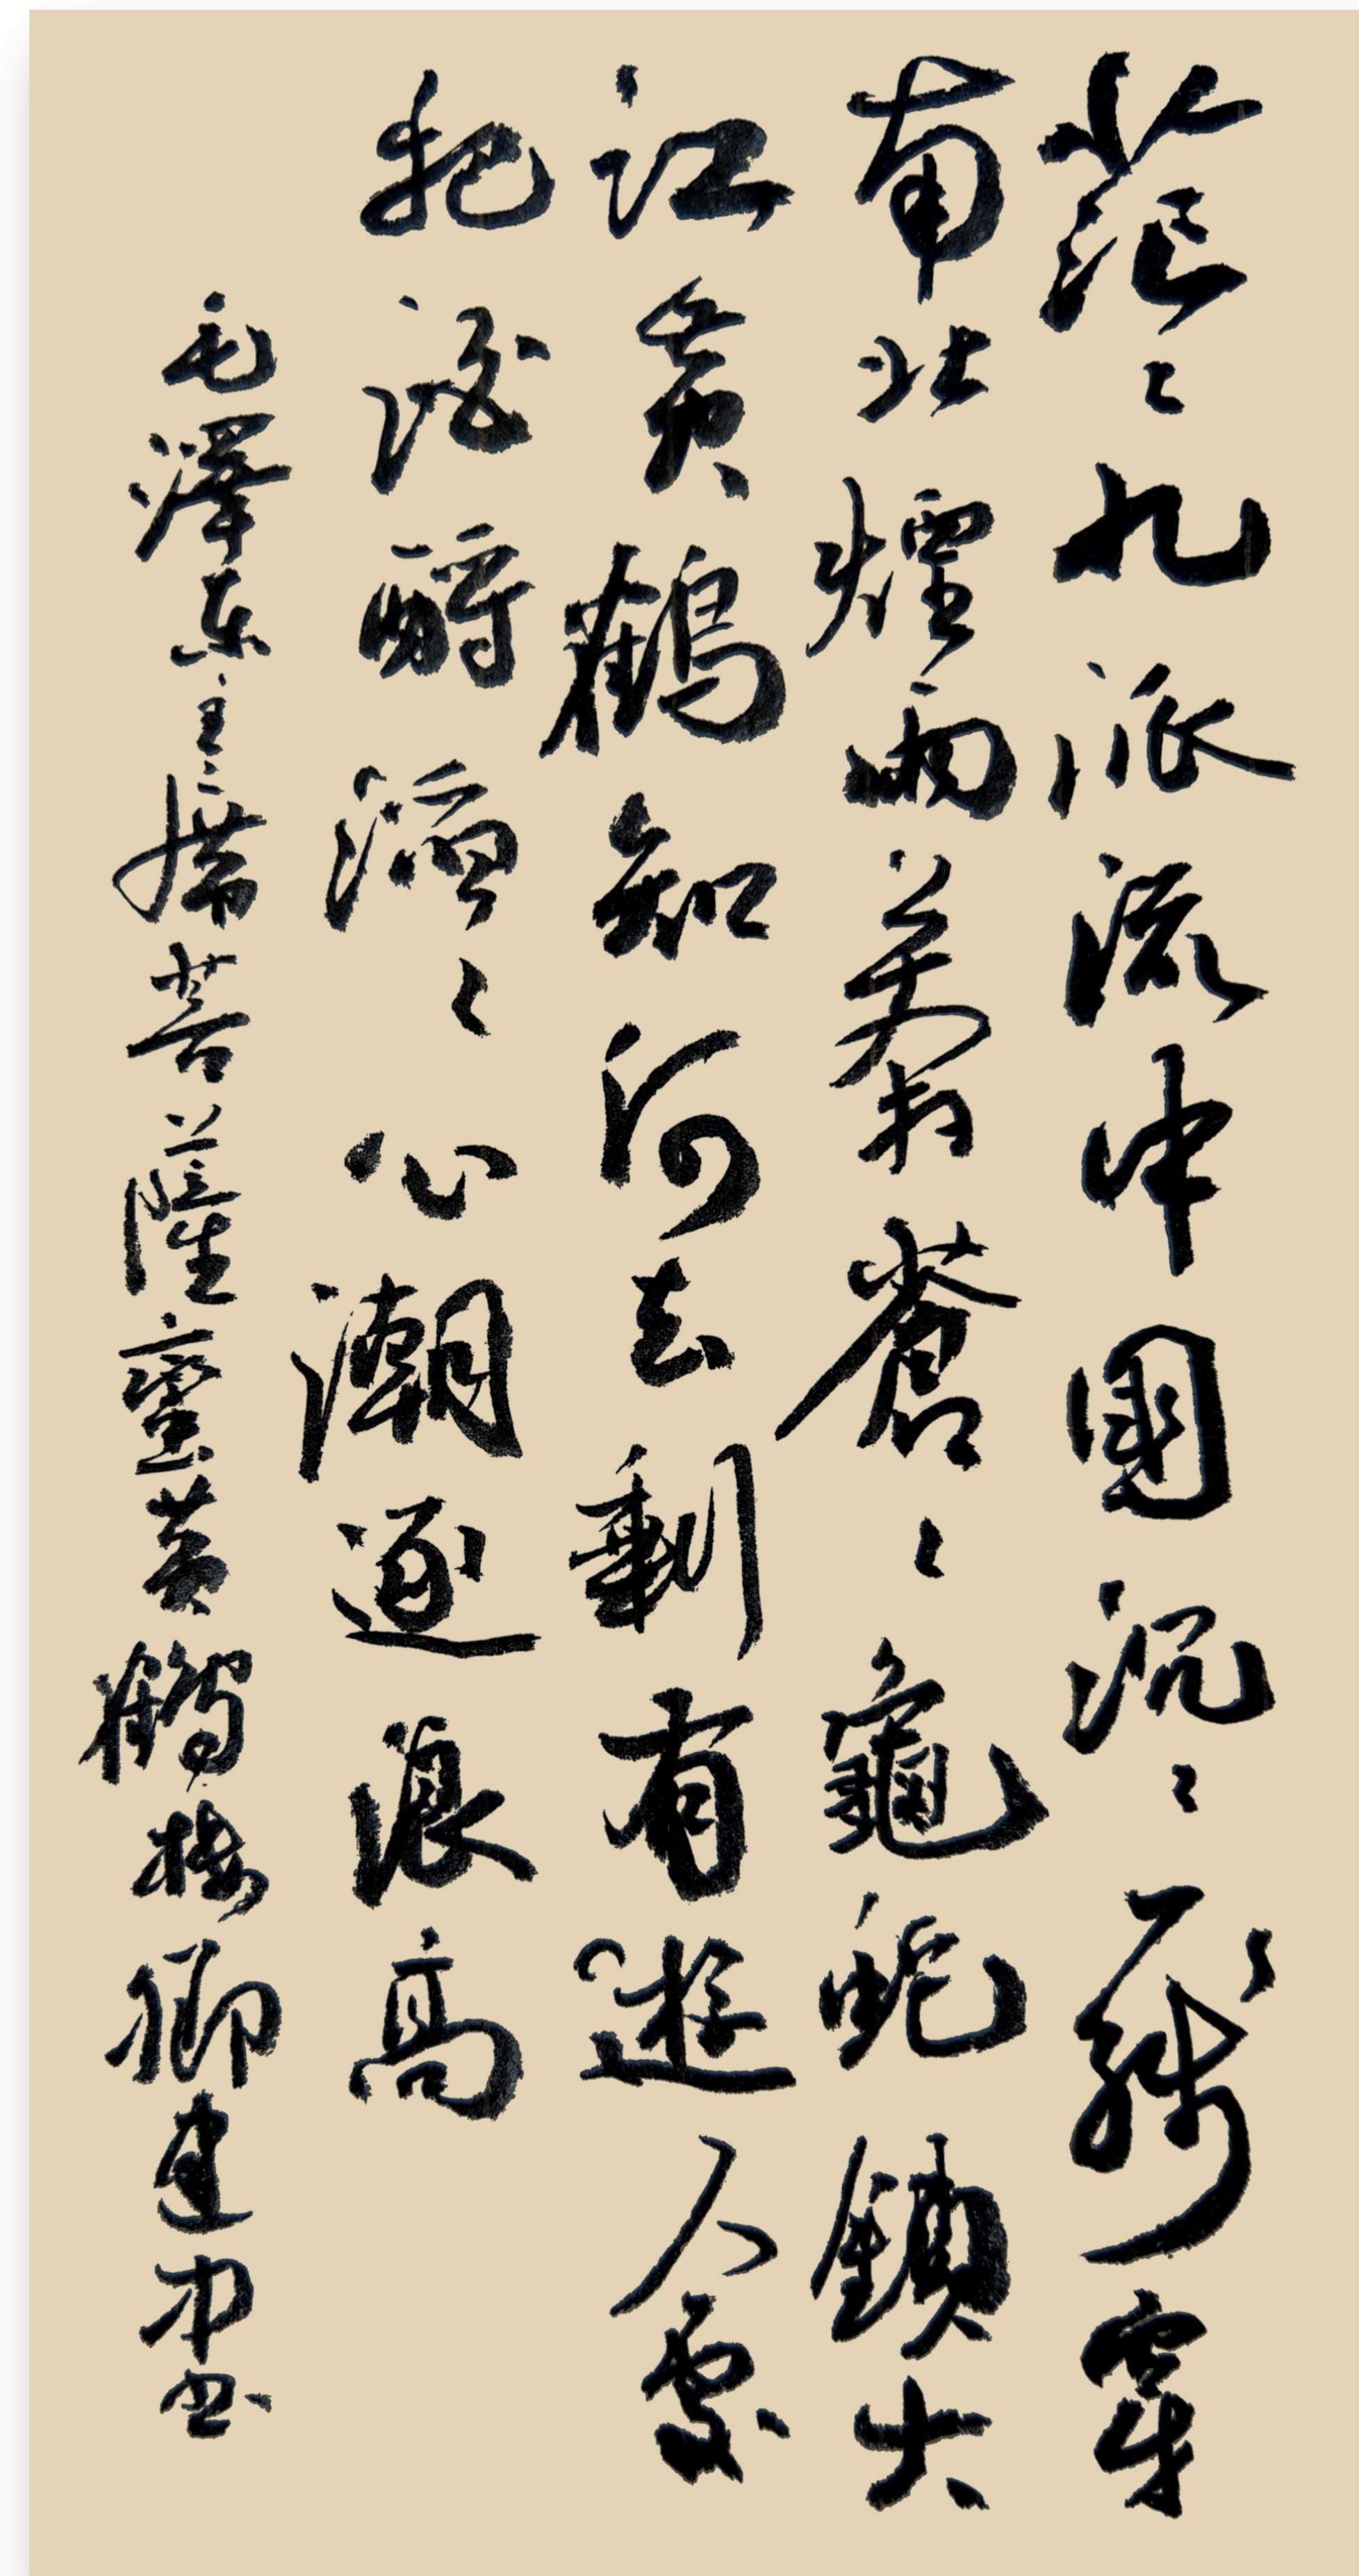 茫々九派流中國沉々一線穿
南北煙雨莽蒼々龜蛇鎖大
江黃鶴知何去剩有遊人處
把酒酹滔々心潮逐浪高
毛澤東主席菩薩蠻黃鶴樓卿建中书